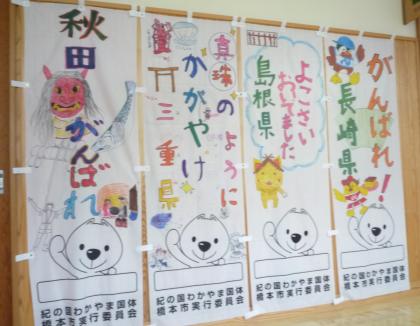 秋田
がんばれ
紀の国わかやま国体
橋本市実行委員会
真珠のように
かがやけ
三重県
紀の国わかやま国体
橋本市実行委員会
よこさい
おいでました
島根県
紀の国わかやま国体
橋本市実行委員会
がんばれ!
長崎県
紀の国わかやま国体
橋本市実行委員会